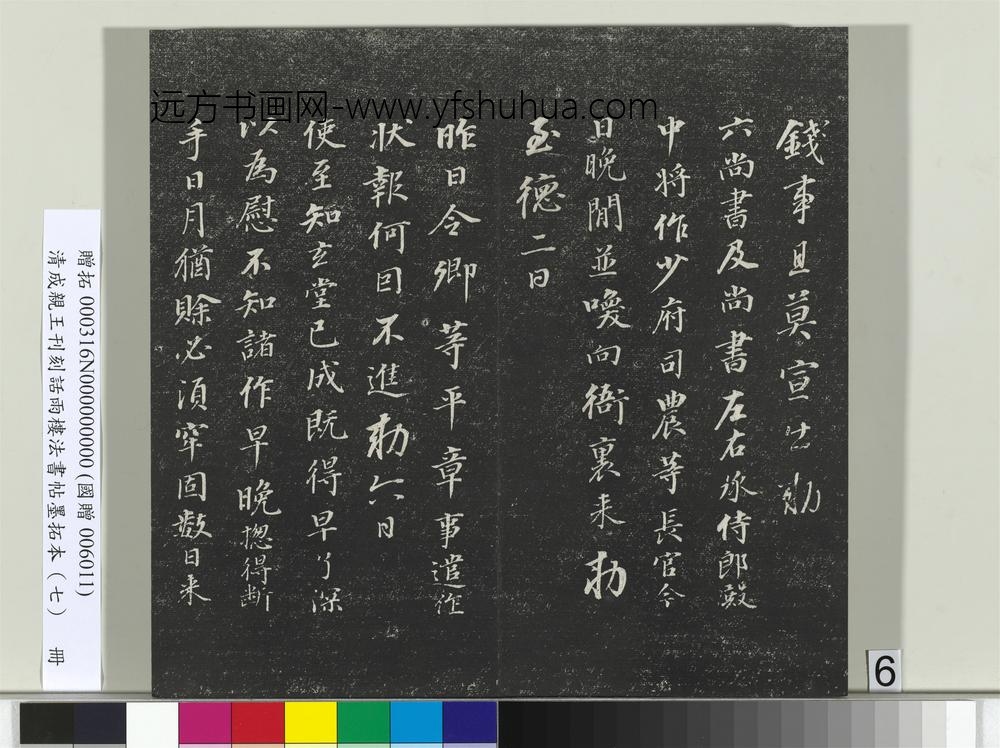 远方书画网-www.yfshuhua.com
錢事且莫宣出勅
六尚書及尚書左右丞侍郎殿
中將作少府司農等長官今
日晚間並喚向衙裏来勅
至德二日
昨日令卿等平章事遣作
狀報何因不進勅六日
使至知玄堂已成既得早了深
以為慰不知諸作早晚揔得断
手日月猶賒必須牢固數日来
贈拓 000316N000000000(國贈 006011)
清成親王刊刻話雨樓法書帖墨拓本(七) 冊
6